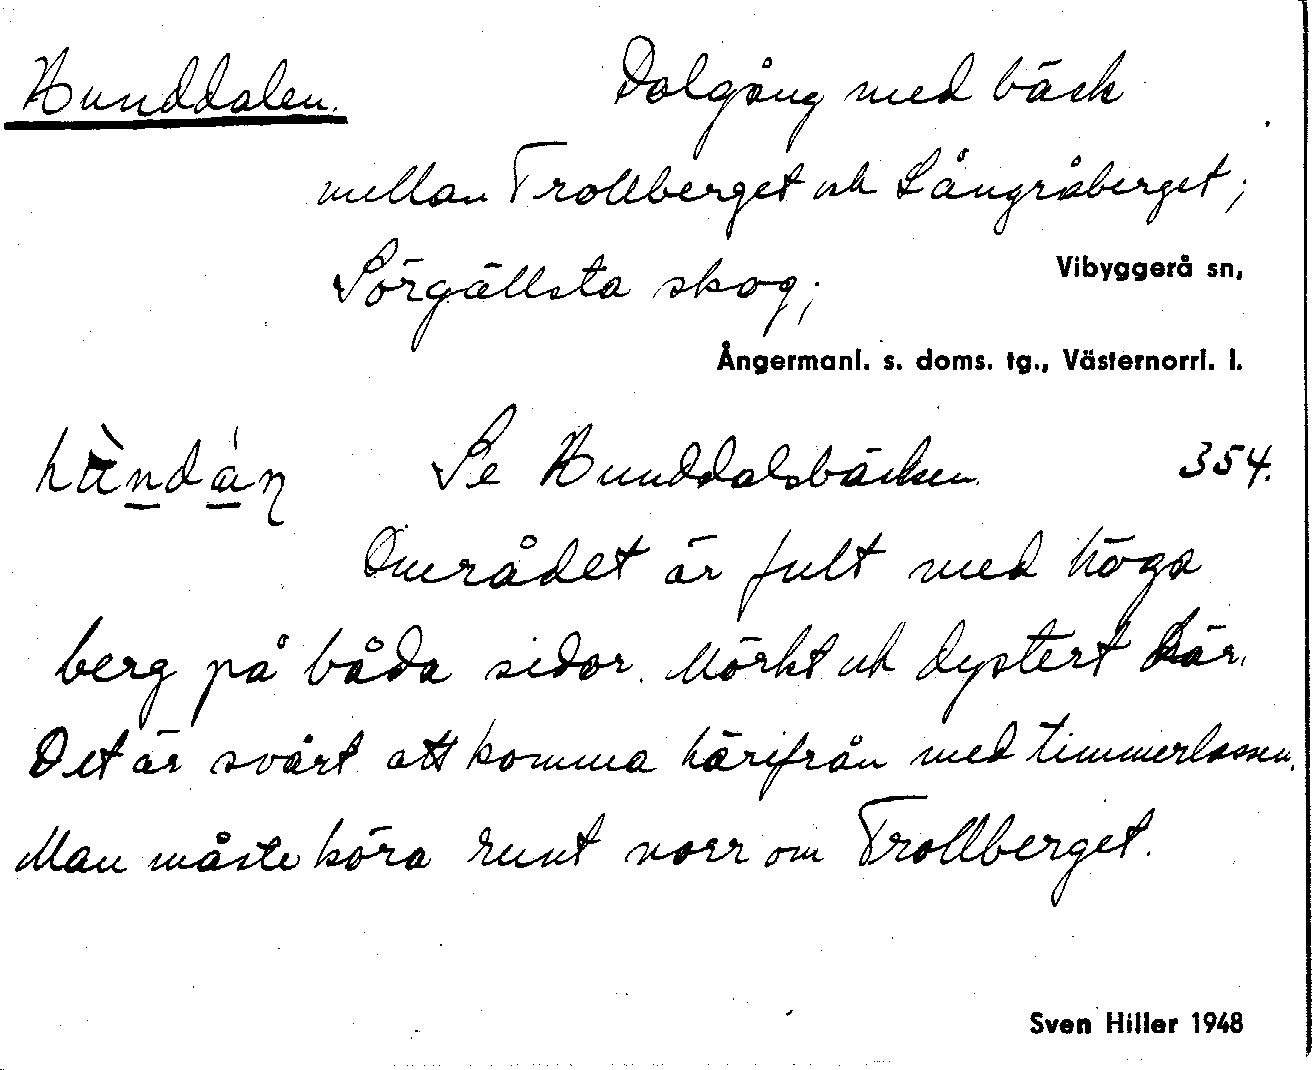 Hunddalen. Dalgång med bäck
mellan Trollberget och Långråberget;
Sörgällsta skog; Vibyggerå sn,
Ångermanl. s. doms. tg., Västernorrl. l.
Se Hunddalsbäcken. 354.
Området är fult med höga
berg på båda sidor. Mörkt och dystert här.
Det är svårt att komma härifrån med timmerlassen.
Man måste köra runt norr om Trollberget.
Sven Hiller 1948